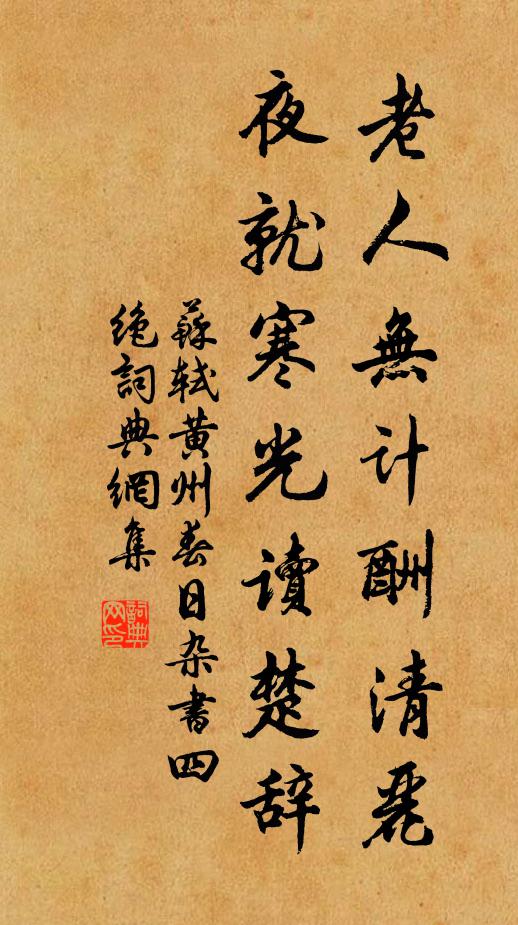 老人無计酬清麗
夜就寒光讀楚辞
蘇轼黄州春日杂書四
绝詞典網集
詞典
网印